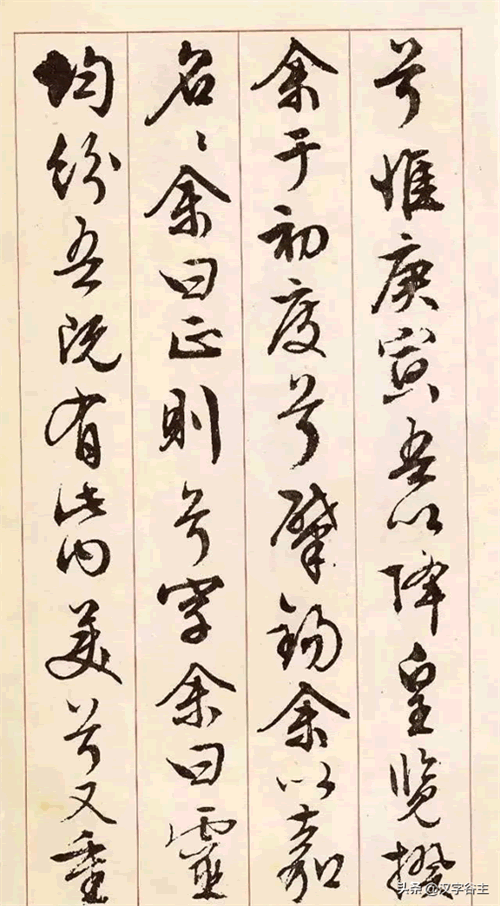 兮惟庚寅吾以降皇览揆
余于初度兮肈锡余以嘉
名名余曰正则兮字余曰靈
均纷吾既有此内美兮又重
头条 @汉字谷主